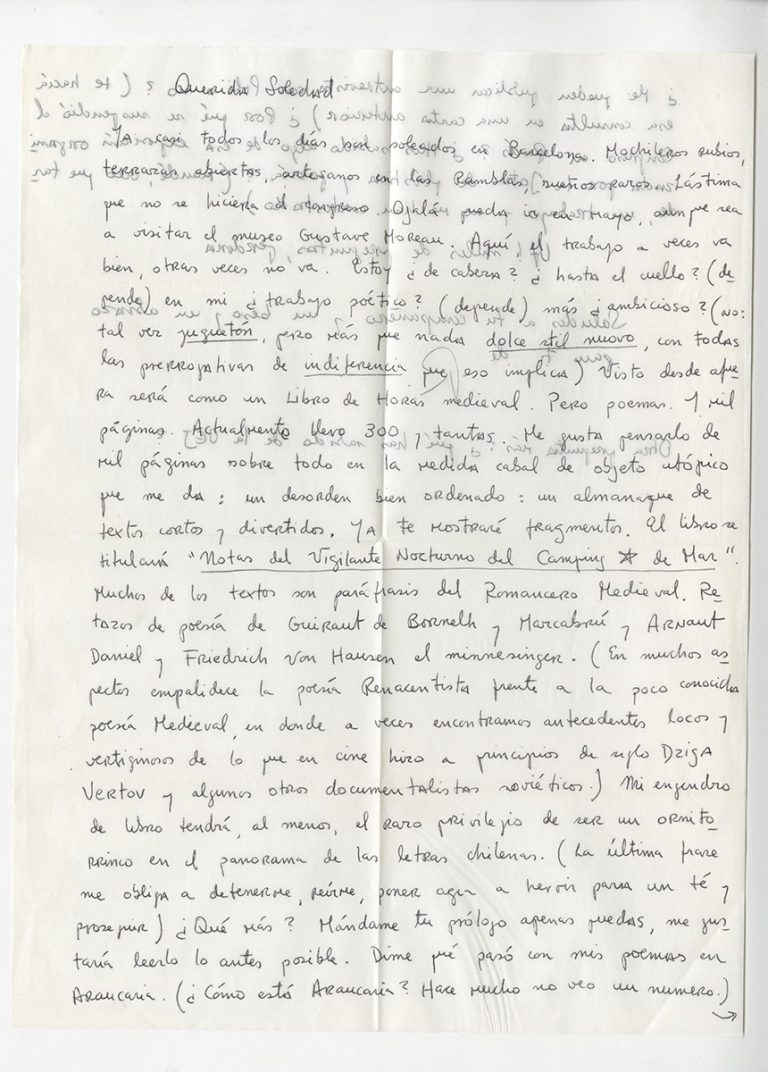 Querida Soledad
Ya casi todos los días son soleados en Barcelona. Mochileros rubios,
terrazas abiertas, artezanos en las Ramblas, sueños raros. Lástima
que no se hiciera el congreso. Ojalá pueda ir en mayo, aunque sea
a visitar el museo Gustave Moreau. Aquí, el trabajo a veces va
bien, otras veces no va. Estoy ¿de cabeza? ¿hasta el cuello? (de-
pende) en mi ¿trabajo poético? (depende) más ¿ambicioso? (no:
tal vez juguetón, pero más que nada dolce stil nuovo, con todas
las prerrogativas de indiferencia que eso implica) Visto desde afue-
ra será como un Libro de Horas medieval. Pero poemas. Y mil
páginas. Actualmente llevo 300 y tantas. Me gusta pensarlo de
mil páginas sobre todo en la medida cabal de objeto utópico
que me da: un desorden bien ordenado: un almanaque de
textos cortos y divertidos. Ya te mostraré fragmentos. El libro se
titulará "Notas del Vigilante Nocturno del Camping ☆ de Mar".
Muchos de los textos son paráfrasis del Romancero Medieval. Re-
tazos de poesía de Guiraut de Bornelh y Marcabrú y Arnaut
Daniel y Friedrich Von Hausen el minnesinger. (En muchos as-
pectos empalidece la poesía Renacentista frente a la poco conocida
poesía Medieval, en donde a veces encontramos antecedentes locos y
vertiginosos de lo que en cine hizo a principios de siglo Dziga
Vertov y algunos otros documentalistas soviéticos.) Mi engendro
de libro tendrá, al menos, el raro privilegio de ser un ornito-
rrinco en el panorama de las letras chilenas. (La última frase
me obliga a detenerme, reírme, poner agua a hervir para un té y
proseguir) ¿Qué más? Mándame tu prólogo apenas puedas, me gus-
taría leerlo lo antes posible. Dime qué pasó con mis poemas en
Araucaria. (¿Cómo está Araucaria? Hace mucho no veo un numero.)
→